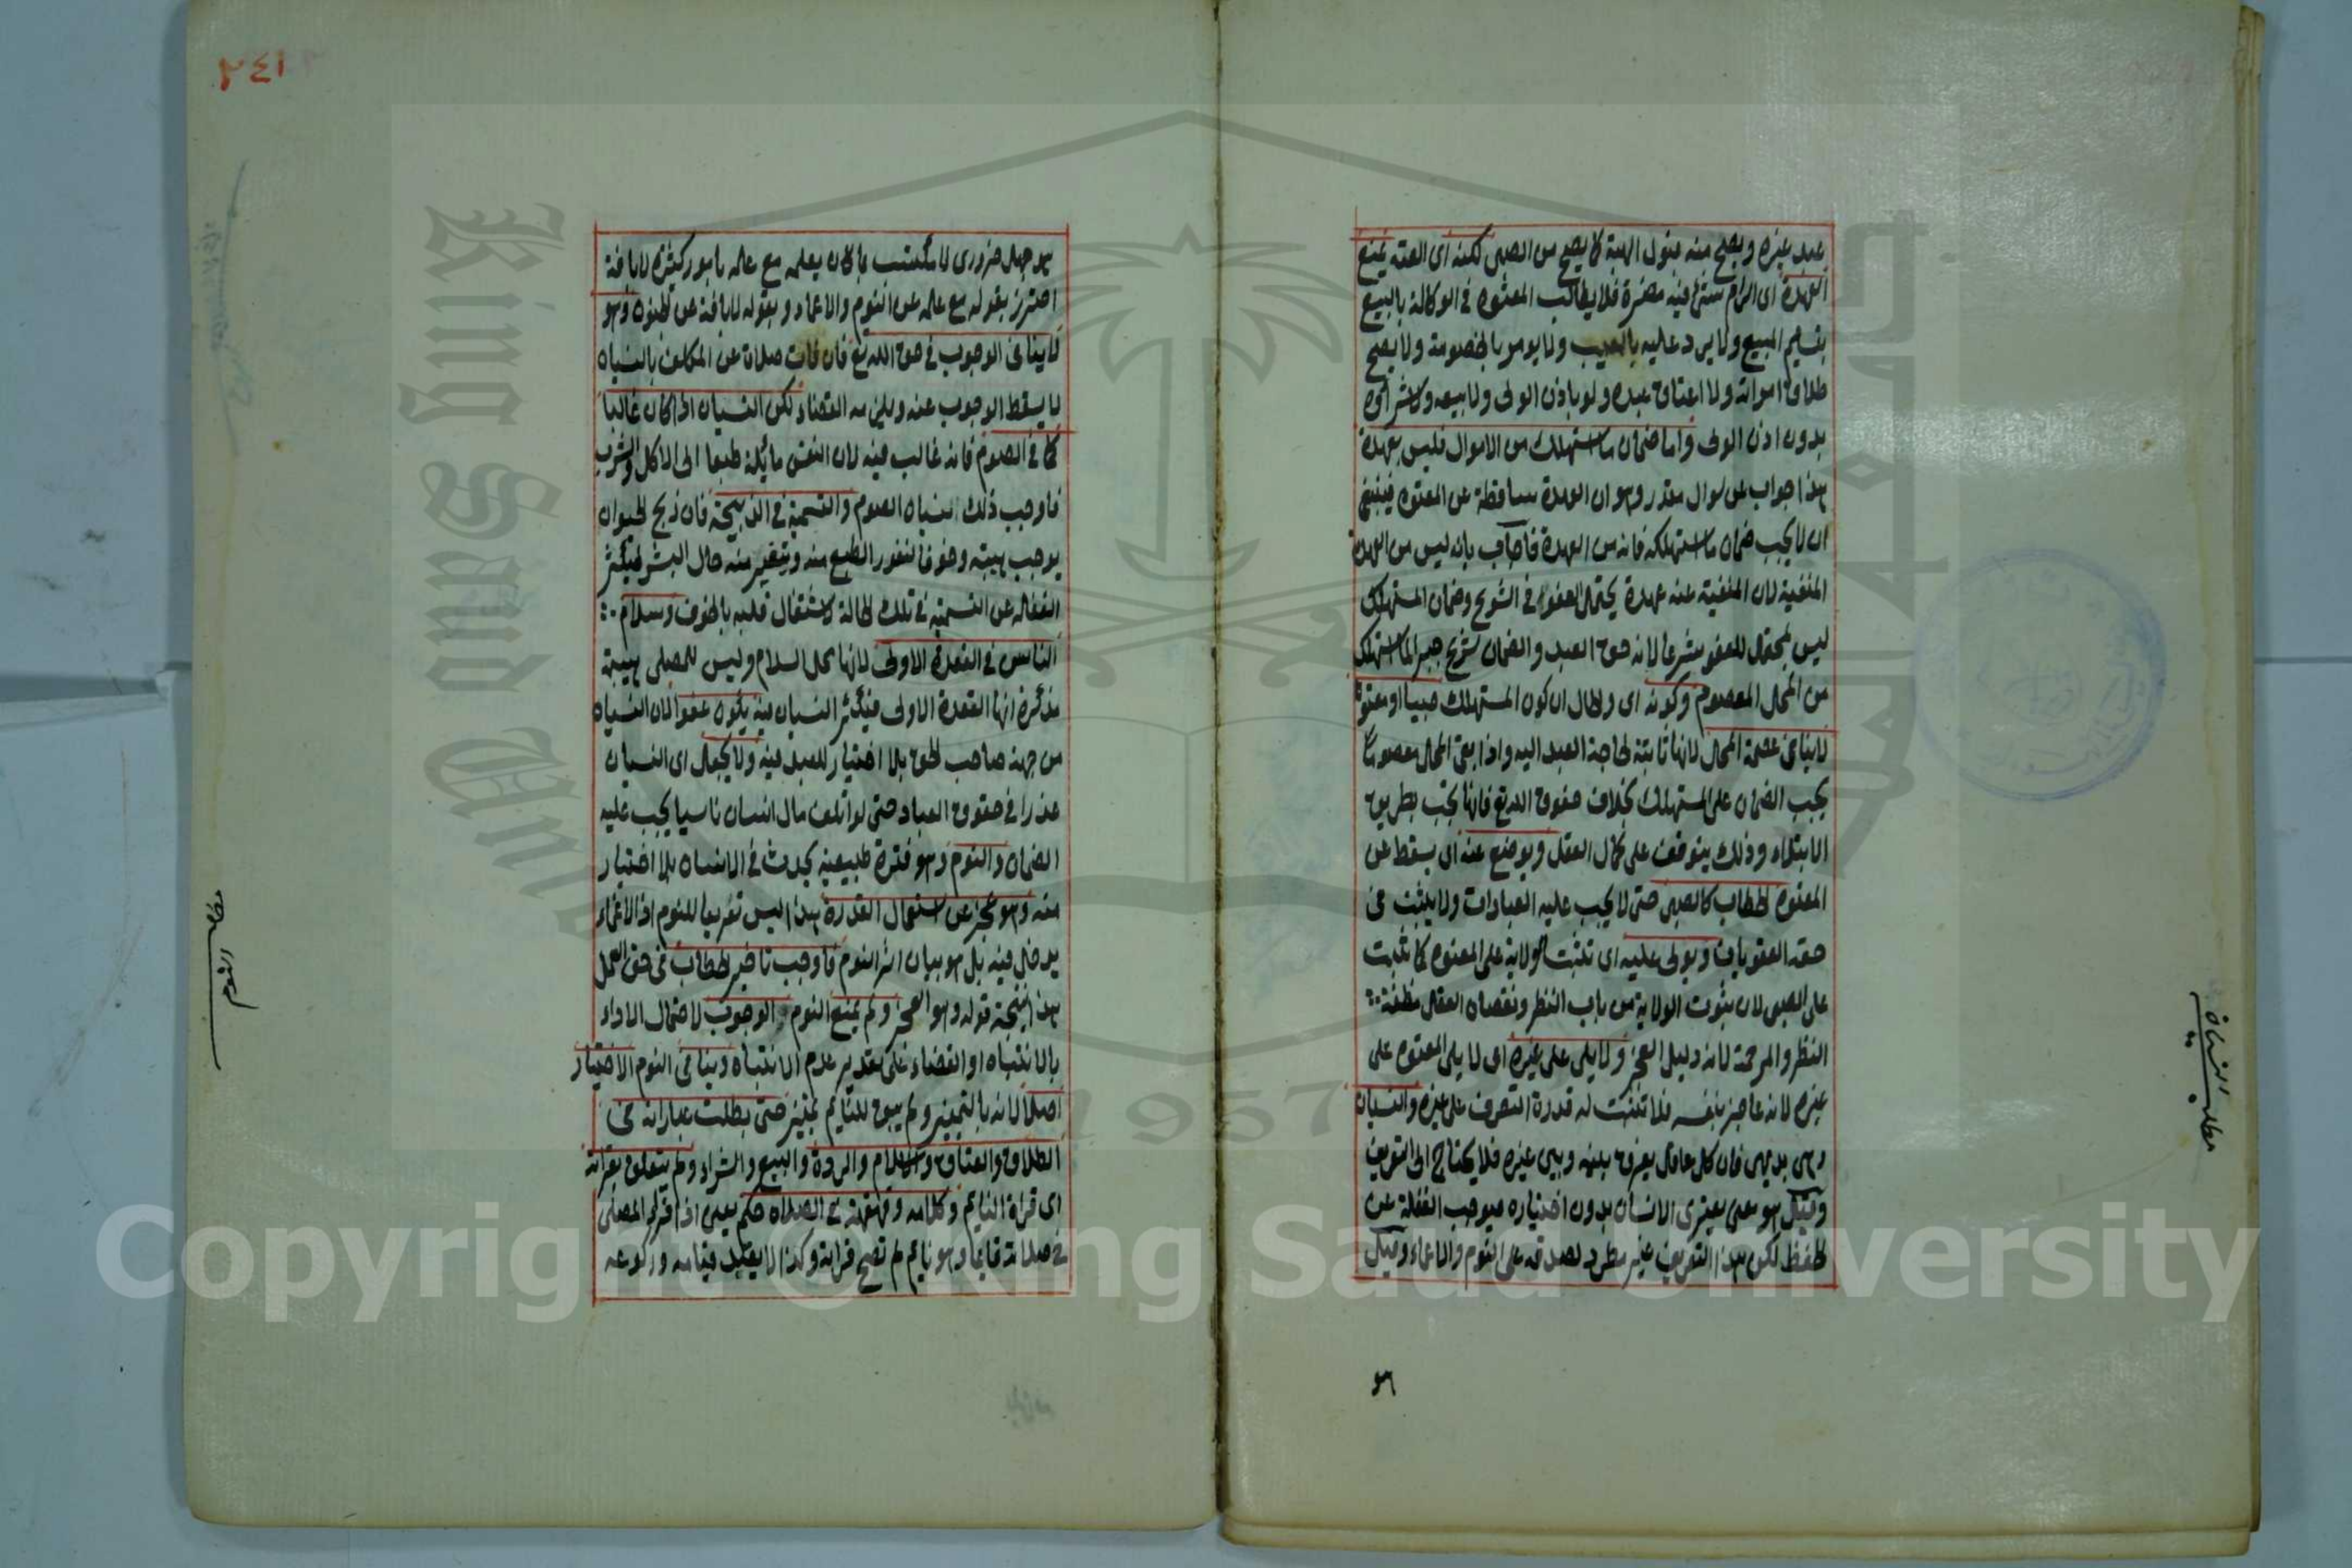 عبد غيره ويصح منه قبول الهبة كما يصح من الصبي لكنه اى العته يمنع
العهدة اى الزام شئ فيه مضرة فلا يطالب المعتوه في الوكالة بالبيع
بتسليم المبيع ولا يرد عليه بالعيب ولا يومر بالخصومة ولا يصح
طلاق امراته ولا اعتاق عبده ولو باذن الولى ولا بيعه ولا شراؤه
بدون اذن الولى واما ضمان ما استهلك من الاموال فليس بعهدة
هذا جواب عن سوال مقدر وهو ان العهدة ساقطة عن المعتوه فينبغى
ان لا يجب ضمان ما استهلكه فانه من العهدة فاجاب بانه ليس من العهدة
المنفية لان المنفية عنه عهدة يحتمل العفو في الشرع وضمان المستهلك
ليس بمحتمل للعفو شرعا لانه حق العبد والضمان شرع جبرا لما استهلك
من المحل المعصوم وكونه اى والحال ان كون المستهلك صبيا او معتوها
لا ينافى عصمة المحل لانها ثابتة لحاجة العبد اليه واذا بقى المحل معصوما
يجب الضمان على المستهلك بخلاف حقوق الله تع فانها تجب بطريق
الابتلاء وذلك يتوقف على كمال العقل ويوضع عنه اى يسقط عن
المعتوه الخطاب كالصبى حتى لا يجب عليه العبادات ولا يثبت فى
حقه العقوبات ويولى عليه اى تثبت الولاية على المعتوه كما تثبت
على الصبى لان ثبوت الولاية من باب النظر ونقصان العقل مظنة
النظر والمرحمة لانه دليل العجز ولا يلى على غيره اى لا يلى المعتوه على
غيره لانه عاجز بنفسه فلا تثبت له قدرة التصرف على غيره والنسيان
وهى بديهى فان كل عاقل يفرق بينه وبين غيره فلا يحتاج الى التعريف
وقيل هو معنى يعترى الانسان بدون اختياره فيوجب الغفلة عن
الحفظ لكن هذا التعريف غير مطرد لصدقه على النوم والاغماء وقيل
هو
مطلب النسيان
٢٤١
هو جهل ضرورى لا مكتسب بما كان يعلمه مع علمه بامور كثيرة لا بافة
احترز بقوله مع علمه عن النوم والاغماء وبقوله لا بافة عن الجنون وهو
لا ينافى الوجوب في حق الله تع فان فات صلاة عن المكلف بالنسيان
لا يسقط الوجوب عنه ويلزمه القضاء لكن النسيان اذا كان غالبا
كما في الصوم فانه غالب فيه لان النفس مائلة طبعا الى الاكل والشرب
فاوجب ذلك نسيان الصوم والتسمية في الذبيحة فان ذبح الحيوان
يوجب هيبة وخوفا لنفور الطبع منه ويتغير منه حال البشر فيكثر
الغفلة عن التسمية في تلك الحالة لاشتغال قلبه بالخوف وسلام
الناسى في القعدة الاولى لانها محل السلام وليس للمصلى هيئة
مذكرة انها القعدة الاولى فيكثر النسيان فيه يكون عفوا لان النسيان
من جهة صاحب الحق بلا اختيار للعبد فيه ولا يجعل اى النسيان
عذرا في حقوق العباد حتى لو اتلف مال انسان ناسيا يجب عليه
الضمان والنوم وهو فترة طبيعية يحدث في الانسان بلا اختيار
منه وهو عجز عن استعمال القدرة هذا ليس تعريفا للنوم اذ الاغماء
يدخل فيه بل هو بيان اثر النوم فاوجب تاخير الخطاب فى حق العمل
هذا نتيجة قوله وهو العجز ولم يمنع النوم الوجوب لاحتمال الاداء
بالانتباه او القضاء على تقدير عدم الانتباه وينافى النوم الاختيار
اصلا لانه بالتمييز ولم يبق للنائم تمييز حتى بطلت عباراته فى
الطلاق والعتاق والاسلام والردة والبيع والشراء ولم يتعلق بقراته
اى قراة النايم وكلامه وقهقهته في الصلاة حكم يعنى اذا قرا المصلى
في صلاته قايما وهو نايم لم تصح قراته وكذا لا يعتد قيامه وركوعه
مطلب النوم
King Saud University
1957
Copyright © King Saud University